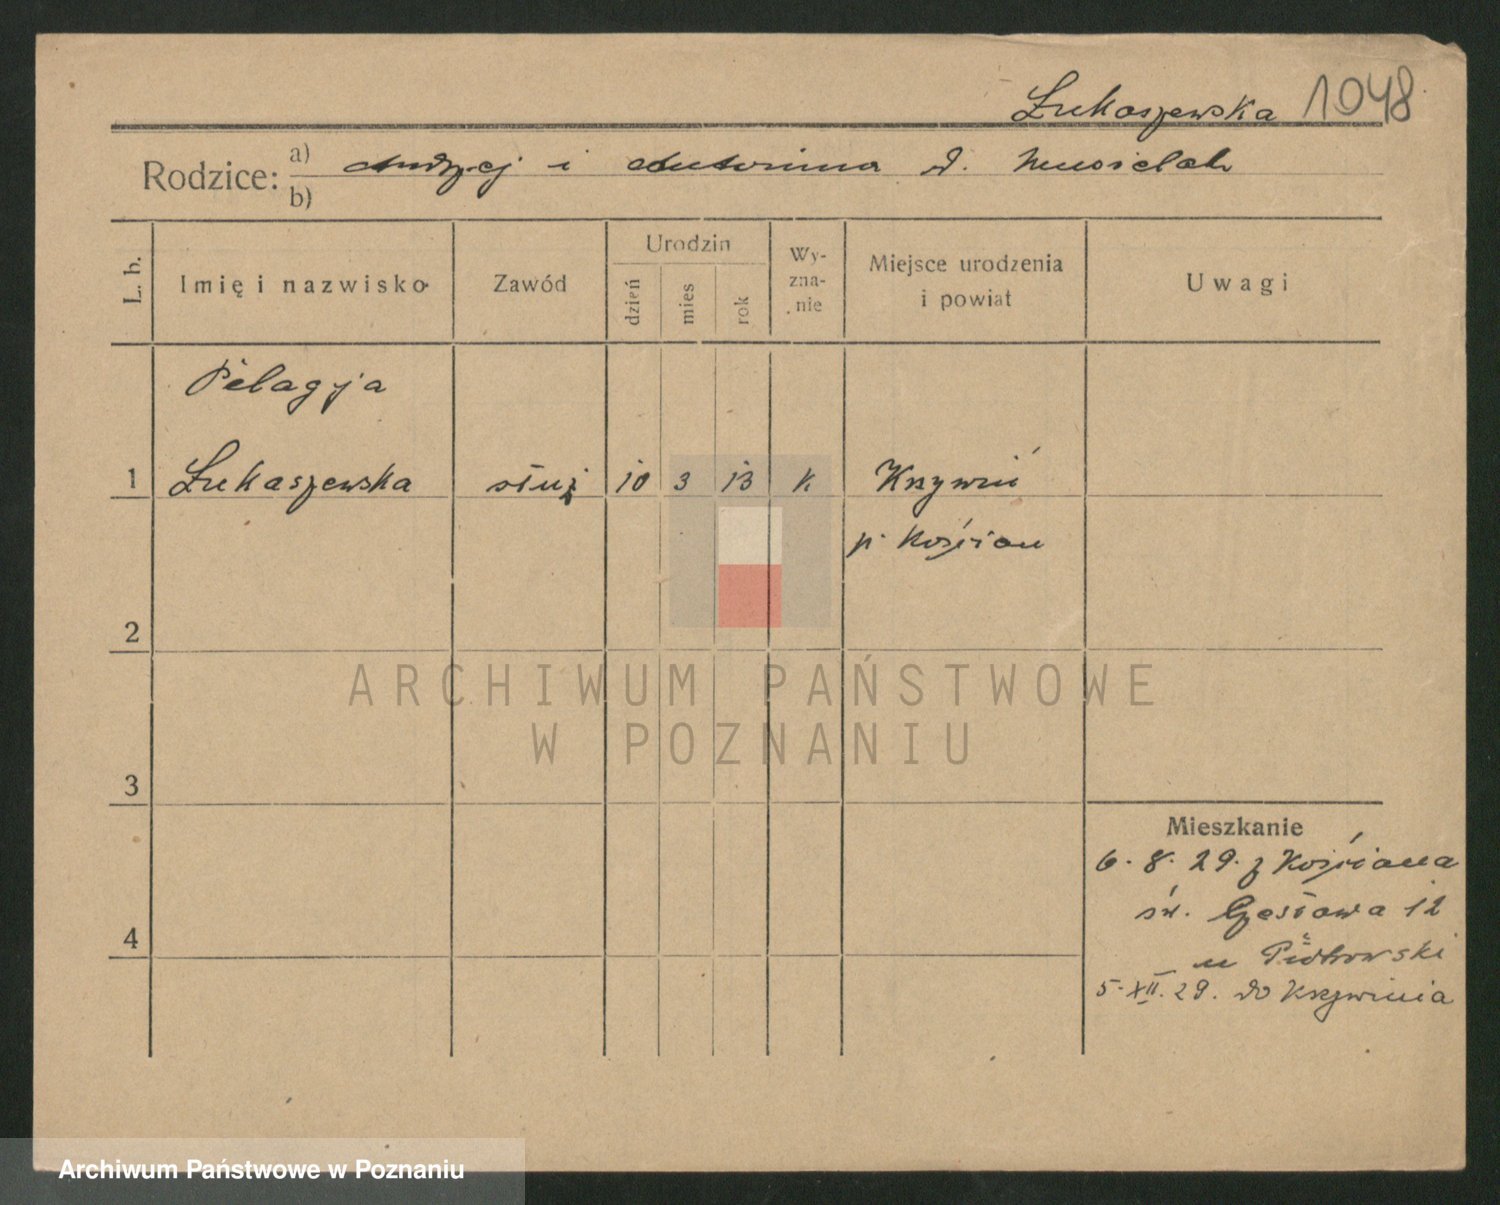 Łukaszewska 1048
Rodzice: a) Andrzej i Antonina d. Musielak
b)
L. b. Imię i nazwisko Zawód Urodzin dzień mies rok Wy-zna-nie Miejsce urodzenia i powiat Uwagi
Pelagja
1 Łukaszewska służ 10 3 13 k Krzywiń
p. Kościan
2
ARCHIWUM PAŃSTWOWE
W POZNANIU
3
Mieszkanie
6. 8. 29. z Kościana
św. Czesława 12
4
u Piotrowski
5. XII. 29. do Krzywinia
Archiwum Państwowe w Poznaniu